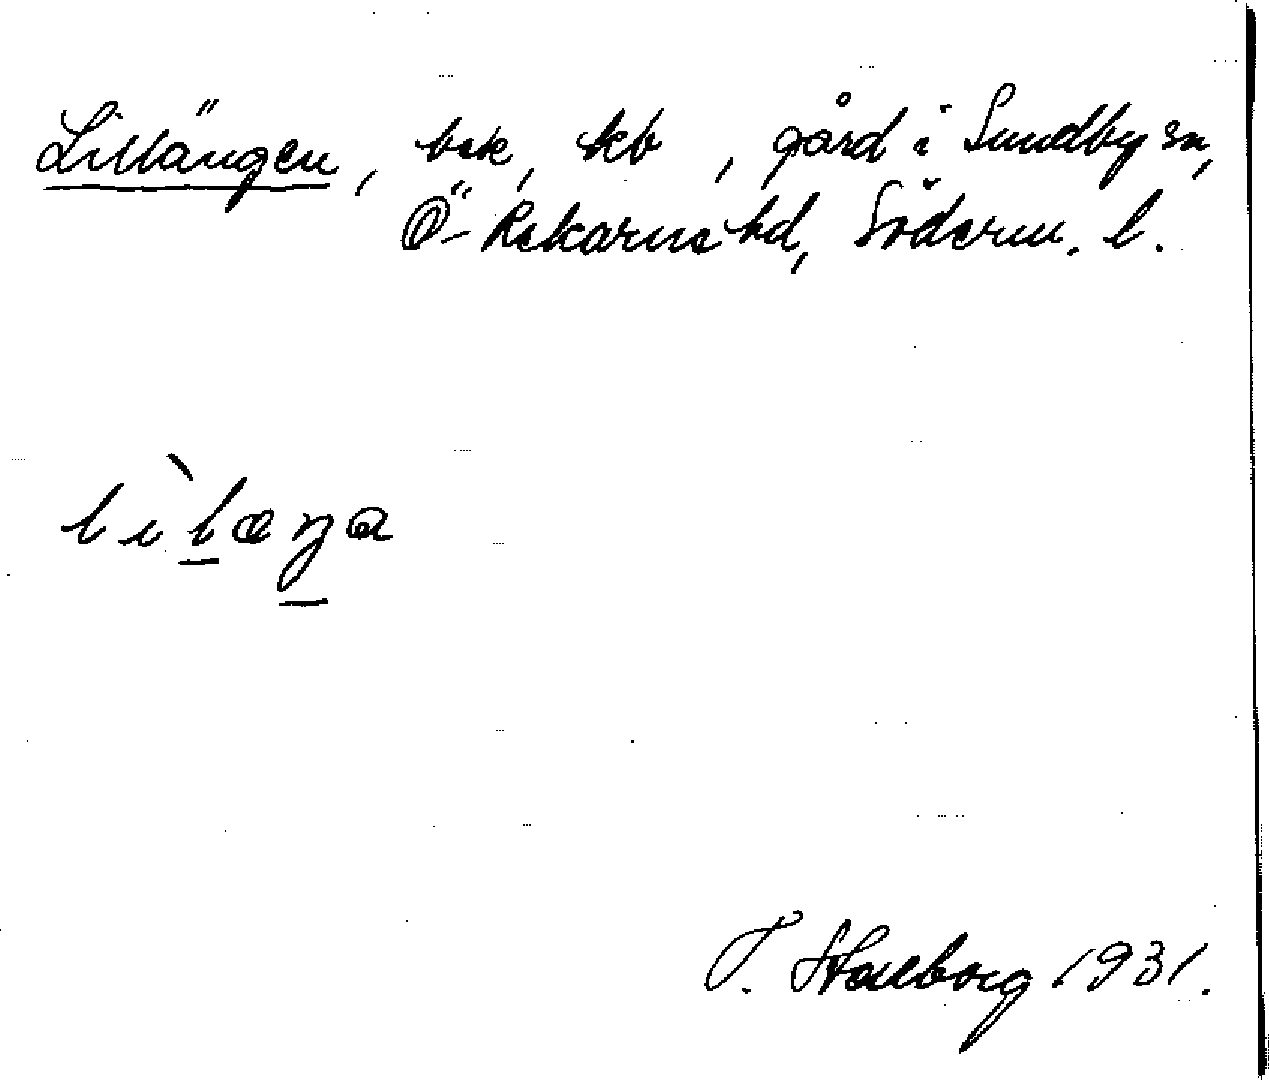 Lillängen, bsk, kb, gård i Sundby sn,
Ö-Rekarne hd, Söderm. l.
lìlæŋa
T. Hallborg 1931.